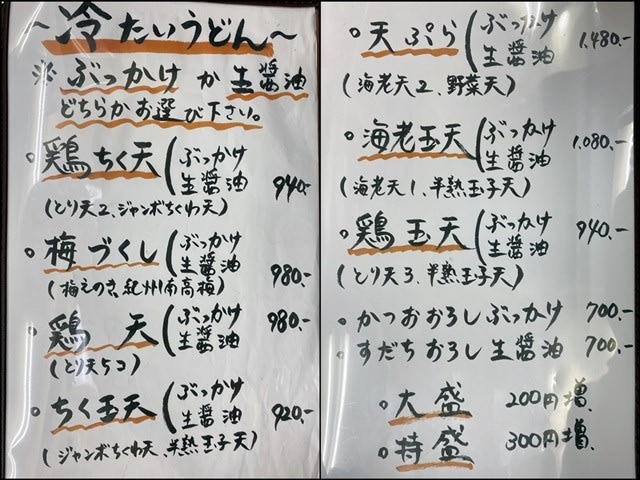 ～冷たいうどん～
※ぶっかけ か 生醤油
どちらかお選び下さい。
○鶏ちく天(ぶっかけ
生醤油 940.-
(とり天2、ジャンボちくわ天)
○梅づくし(ぶっかけ
生醤油 980.-
(梅えのき、紀州南高梅)
○鶏 天(ぶっかけ
生醤油 980.-
(とり天5コ)
○ちく玉天(ぶっかけ
生醤油 920.-
(ジャンボちくわ天、半熟玉子天)
○天ぷら(ぶっかけ
生醤油 1,480.-
(海老天2、野菜天)
○海老玉天(ぶっかけ
生醤油 1,080.-
(海老天1、半熟玉子天)
○鶏玉天(ぶっかけ
生醤油 940.-
(とり天3、半熟玉子天)
○かつおおろしぶっかけ 700.-
○すだちおろし生醤油 700.-
○大盛 200円増.
○特盛 300円増.